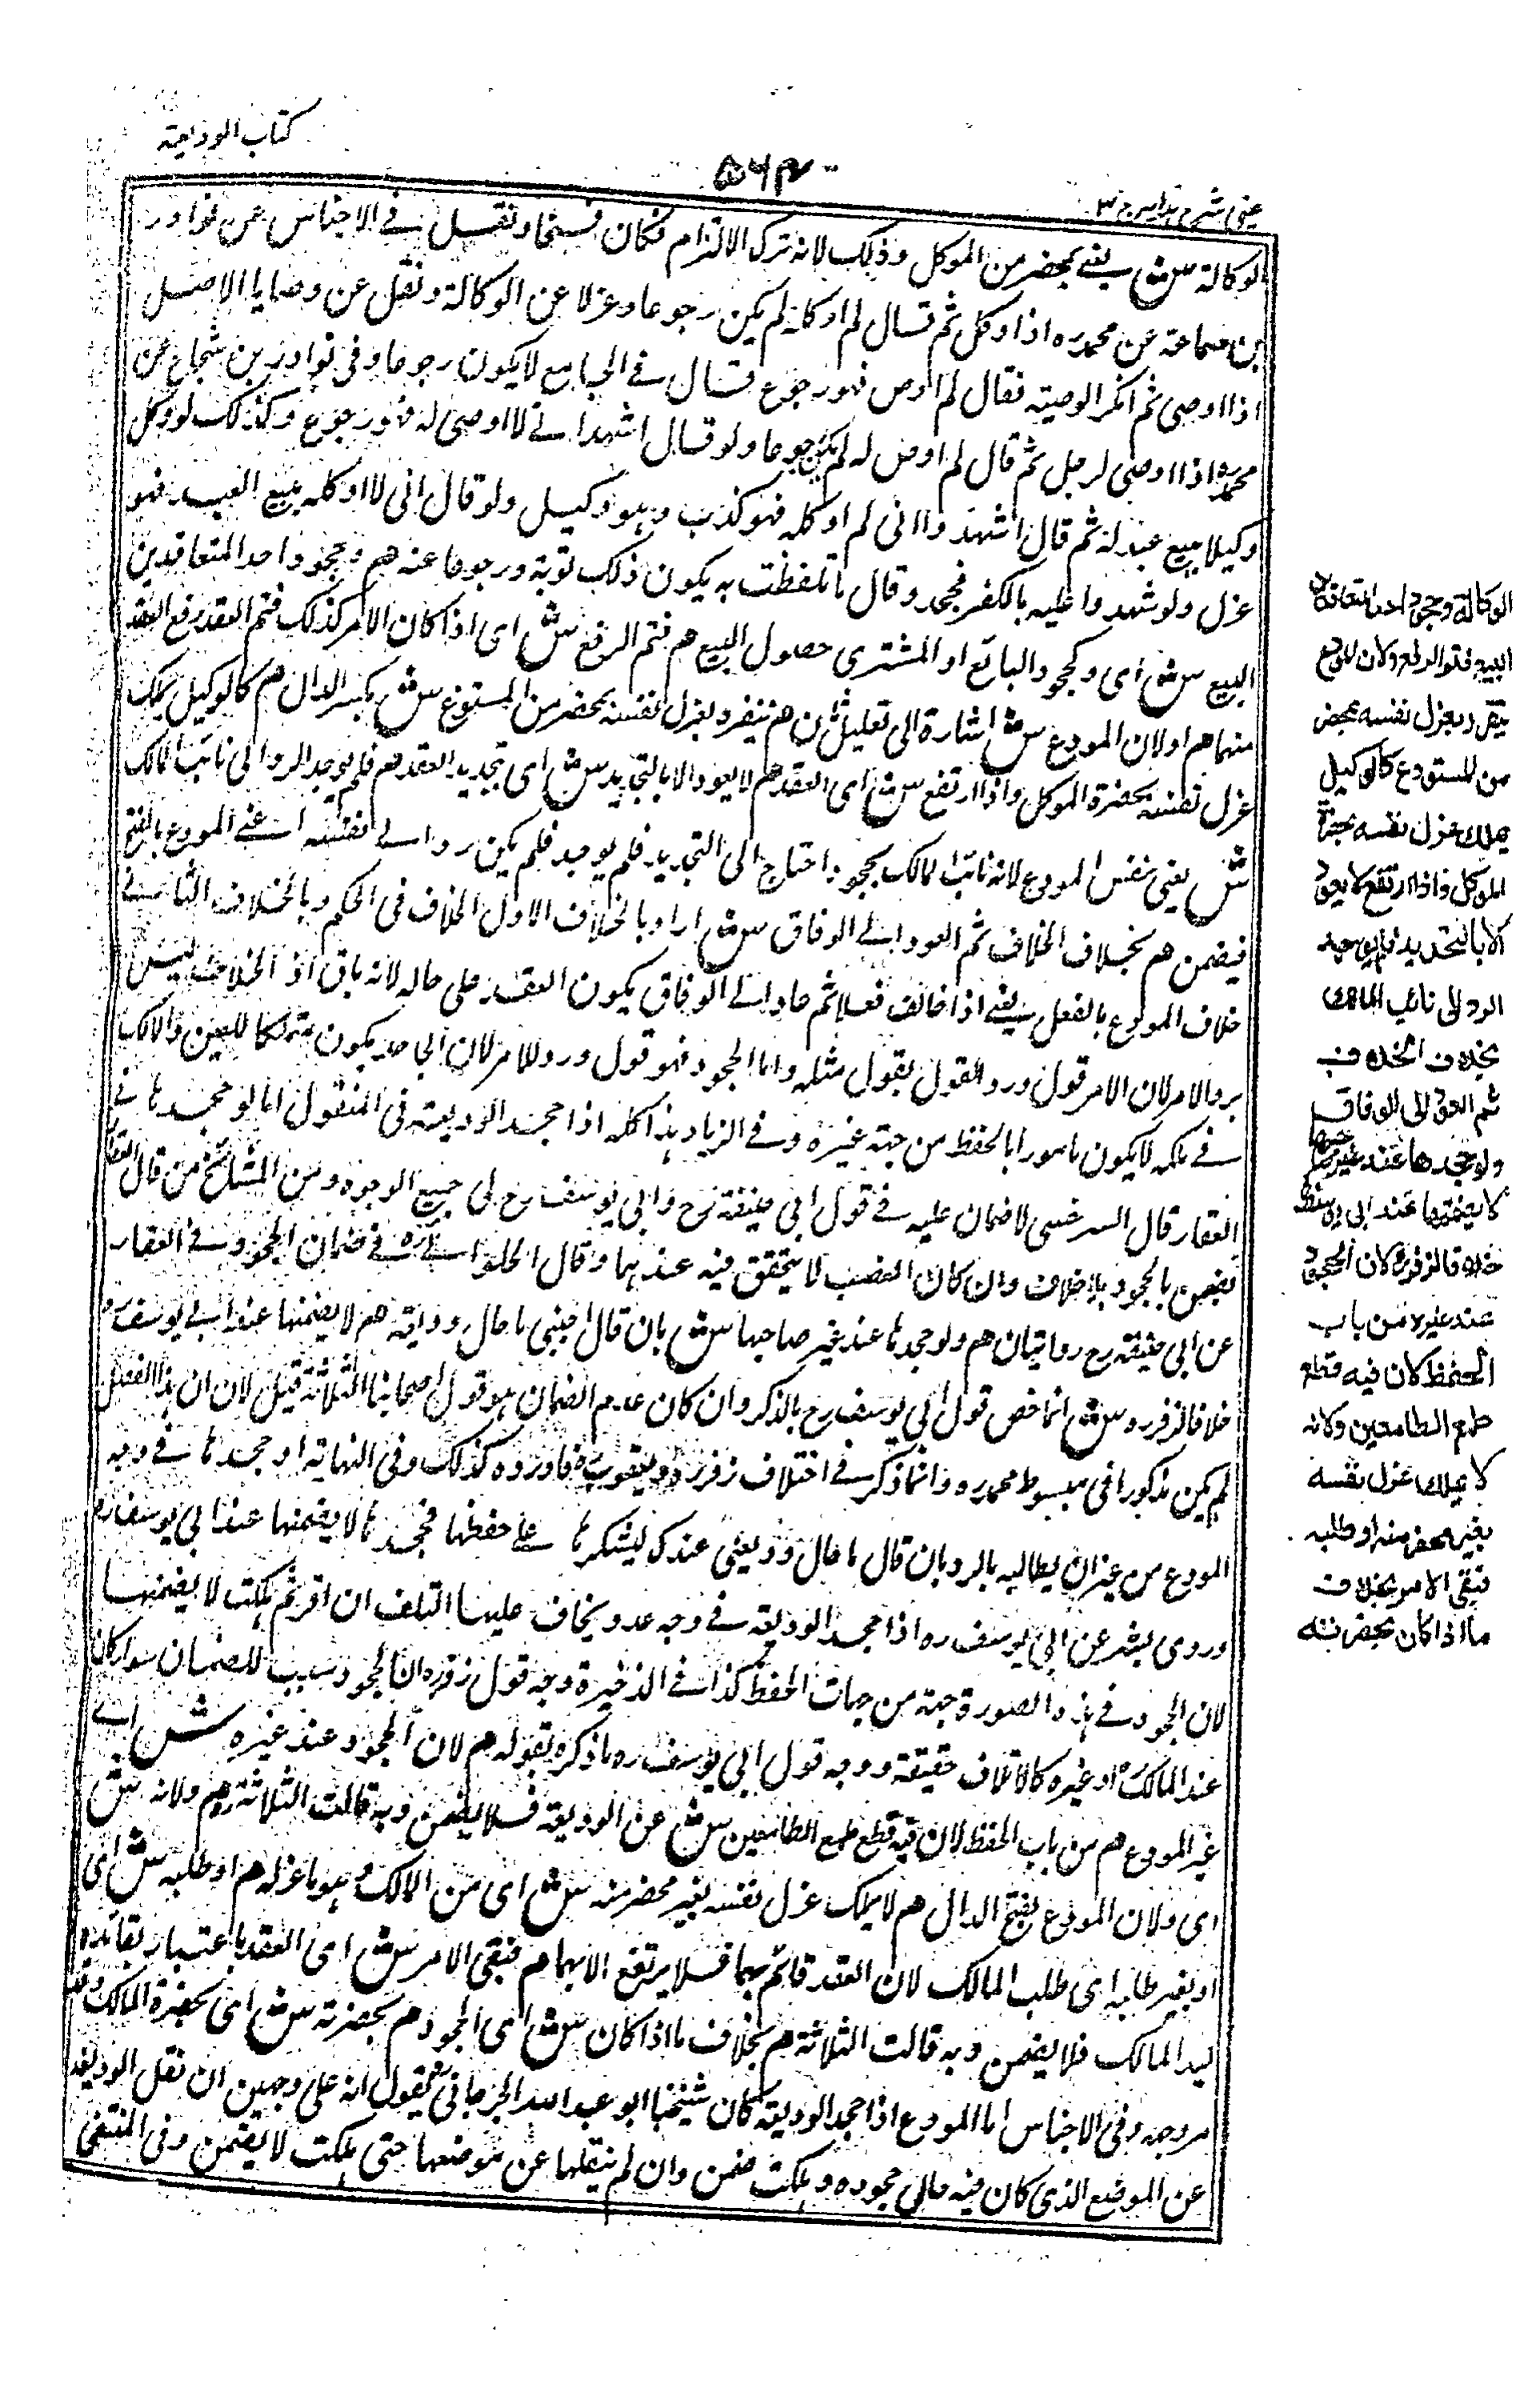 كتاب الوديعة
٥٦٣
عينى شرح هدايه ج ٣
الوكالة ش يعنے بمحضر من الموكل وذلك لانه ترك الالتزام فكان فسخا ونقل فے الاجناس عن نوادر
بن سماعة عن محمد ره اذا وكل ثم قال لم اوكله لم يكن رجوعا وعزلا عن الوكالة ونقل عن وصايا الاصل
اذا اوصى ثم انكر الوصية فقال لم اوص فهو رجوع قال فے الجامع لا يكون رجوعا وفى نوادر بن شجاع عن
محمد ره اذا اوصى لرجل ثم قال لم اوص له لم يكن رجوعا ولو قال اشهد انے لا اوصى له فهو رجوع وكذلك لو وكل
وكيلا ببيع عبد له ثم قال اشهدوا انى لم اوكله فهو كذب وهو وكيل ولو قال انى لا اوكله ببيع العبد فهو
عزل ولو شهدوا عليه بالكفر فجحد وقال ما تلفظت به يكون ذلك توبة ورجوعا عنه هم وبجحود احد المتعاقدين
البيع ش اى وكجحود البائع او المشترى حصول البيع هم فتم الرفع ش اى اذا كان الامر كذلك فتم العقد رفع العقد
منهما هم او لان المودع ش اشارة الى تعليل ثان هم ينفرد بعزل نفسه بمحضر من المستودع ش بكسر الدال هم كالوكيل يملك
عزل نفسه بحضرة الموكل واذا ارتفع ش اى العقد هم لا يعود الا بالتجديد ش اى تجديد العقد هم فلم يوجد الرد الى نائب المالك
ش يعنى نفس المودع لانه نائب المالك بجحوده احتاج الى التجديد فلم يوجد فلم يكن ردا الے نفسه اعنے المودع بالفتح
فيضمن هم بخلاف الخلاف ثم العود الے الوفاق ش اراد بالخلاف الاول الخلاف فى الحكم وبالخلاف الثانے
خلاف المودع بالفعل يعنے اذا خالف فعلا ثم عاد الے الوفاق يكون العقد على حاله لانه باق اذ الخلاف ليس
برد الامر لان الامر قول ورد القول بقول مثله واما الجحود فهو قول ورد للامر لان الجاحد يكون متملكا للعين والمالك
فے ملكه لا يكون مامورا بالحفظ من جهة غيره وفے الزياد هذا كله اذا جحد الوديعة فى المنقول اما لو جحدها فے
العقار قال السرخسى لا ضمان عليه فے قول ابى حنيفة رح وابى يوسف رح لى جميع الوجوه ومن المشائخ من قال العقار
يضمن بالجحود بلا خلاف وان كان الغصب لا يتحقق فيه عندهما وقال الحلوانے ره فے ضمان الجحود فے العقار
عن ابى حنيفة رح روايتان هم ولو جحدها عند غير صاحبها ش بان قال اجنبى ما حال وديعة هم لا يضمنها عند ابے يوسف ره
خلافا لزفر ره ش انما خص قول ابى يوسف رح بالذكر وان كان عدم الضمان هو قول اصحابنا الثلاثة قيل لان ان هذا الفصل
لم يكن مذكورا فى مبسوط محمد ره وانما ذكر فے اختلاف زفر ره ويعقوب ره فاورده كذلك وفى النهاية او جحدها فے وجه
المودع من غير ان يطالبه بالرد بان قال ما حال وديعتى عندك ليشكرها علے حفظها فجحدها لا يضمنها عند ابى يوسف ره
وروى بشر عن ابى يوسف ره اذا جحد الوديعة فے وجه عدو يخاف عليها التلف ان اقر ثم هلكت لا يضمنها
لان الجحود فے هذه الصورة جهة من جهات الحفظ كذا فے الذخيرة وجه قول زفر ره ان الجحود سبب للضمان سواء كان
عند المالك او غيره كالاتلاف حقيقة ووجه قول ابى يوسف ره ما ذكره بقوله هم لان الجحود عند غيره ش اے
غير المودع هم من باب الحفظ لان فيه قطع طمع الطامعين ش عن الوديعة فلا يضمن وبه قالت الثلاثة ره هم ولانه ش
اى ولان المودع بفتح الدال هم لا يملك عزل نفسه بغير محضر منه ش اى من المالك وهو ما عزله هم او طلبه ش اى
او بغير طلبه اى طلب المالك لان العقد قائم بهما فلا يرتفع الا بهما هم فبقى الامر ش اى العقد باعتبار بقائه
ليد المالك فلا يضمن وبه قالت الثلاثة هم بخلاف ما اذا كان ش اى الجحود هم بحضرته ش اى بحضرة المالك وقد
مر وجه وفى الاجناس اما المودع اذا جحد الوديعة كان شيخنا ابو عبد الله الجرجانى ره يقول انه على وجهين ان نقل الوديعة
عن الموضع الذى كان فيه حالى جحوده وهلكت ضمن وان لم ينقلها عن موضعها حتى هلكت لا يضمن وفى المنتقى
الوكالة وجحود احد المتعاقدين
البيع فتم الرفع ولان المودع
ينفرد بعزل نفسه بمحضر
من المستودع كالوكيل
يملك عزل نفسه بحضرة
الموكل واذا ارتفع لا يعود
الا بالتجديد فلم يوجد
الرد الى نائب المالك
بخلاف الخلاف
ثم العود الى الوفاق
ولو جحدها عند غير صاحبها
لا يضمنها عند ابى يوسف ره
خلافا لزفر ره لان الجحود
عند غيره من باب
الحفظ لان فيه قطع
طمع الطامعين ولانه
لا يملك عزل نفسه
بغير محضر منه او طلبه
فبقى الامر بخلاف
ما اذا كان بحضرته